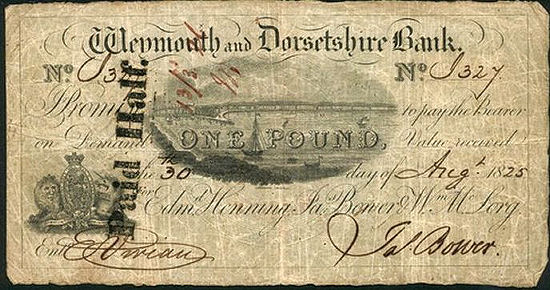 Weymouth and Dorsetshire Bank.
No. No. J327
I Promise to pay the Bearer
on Demand ONE POUND, Value received
the 30th day of Augt. 1825
For Edmd. Henning, Jas. Bower & Wm. McLorg.
Entd. Jas. Bower.
Paid Half.